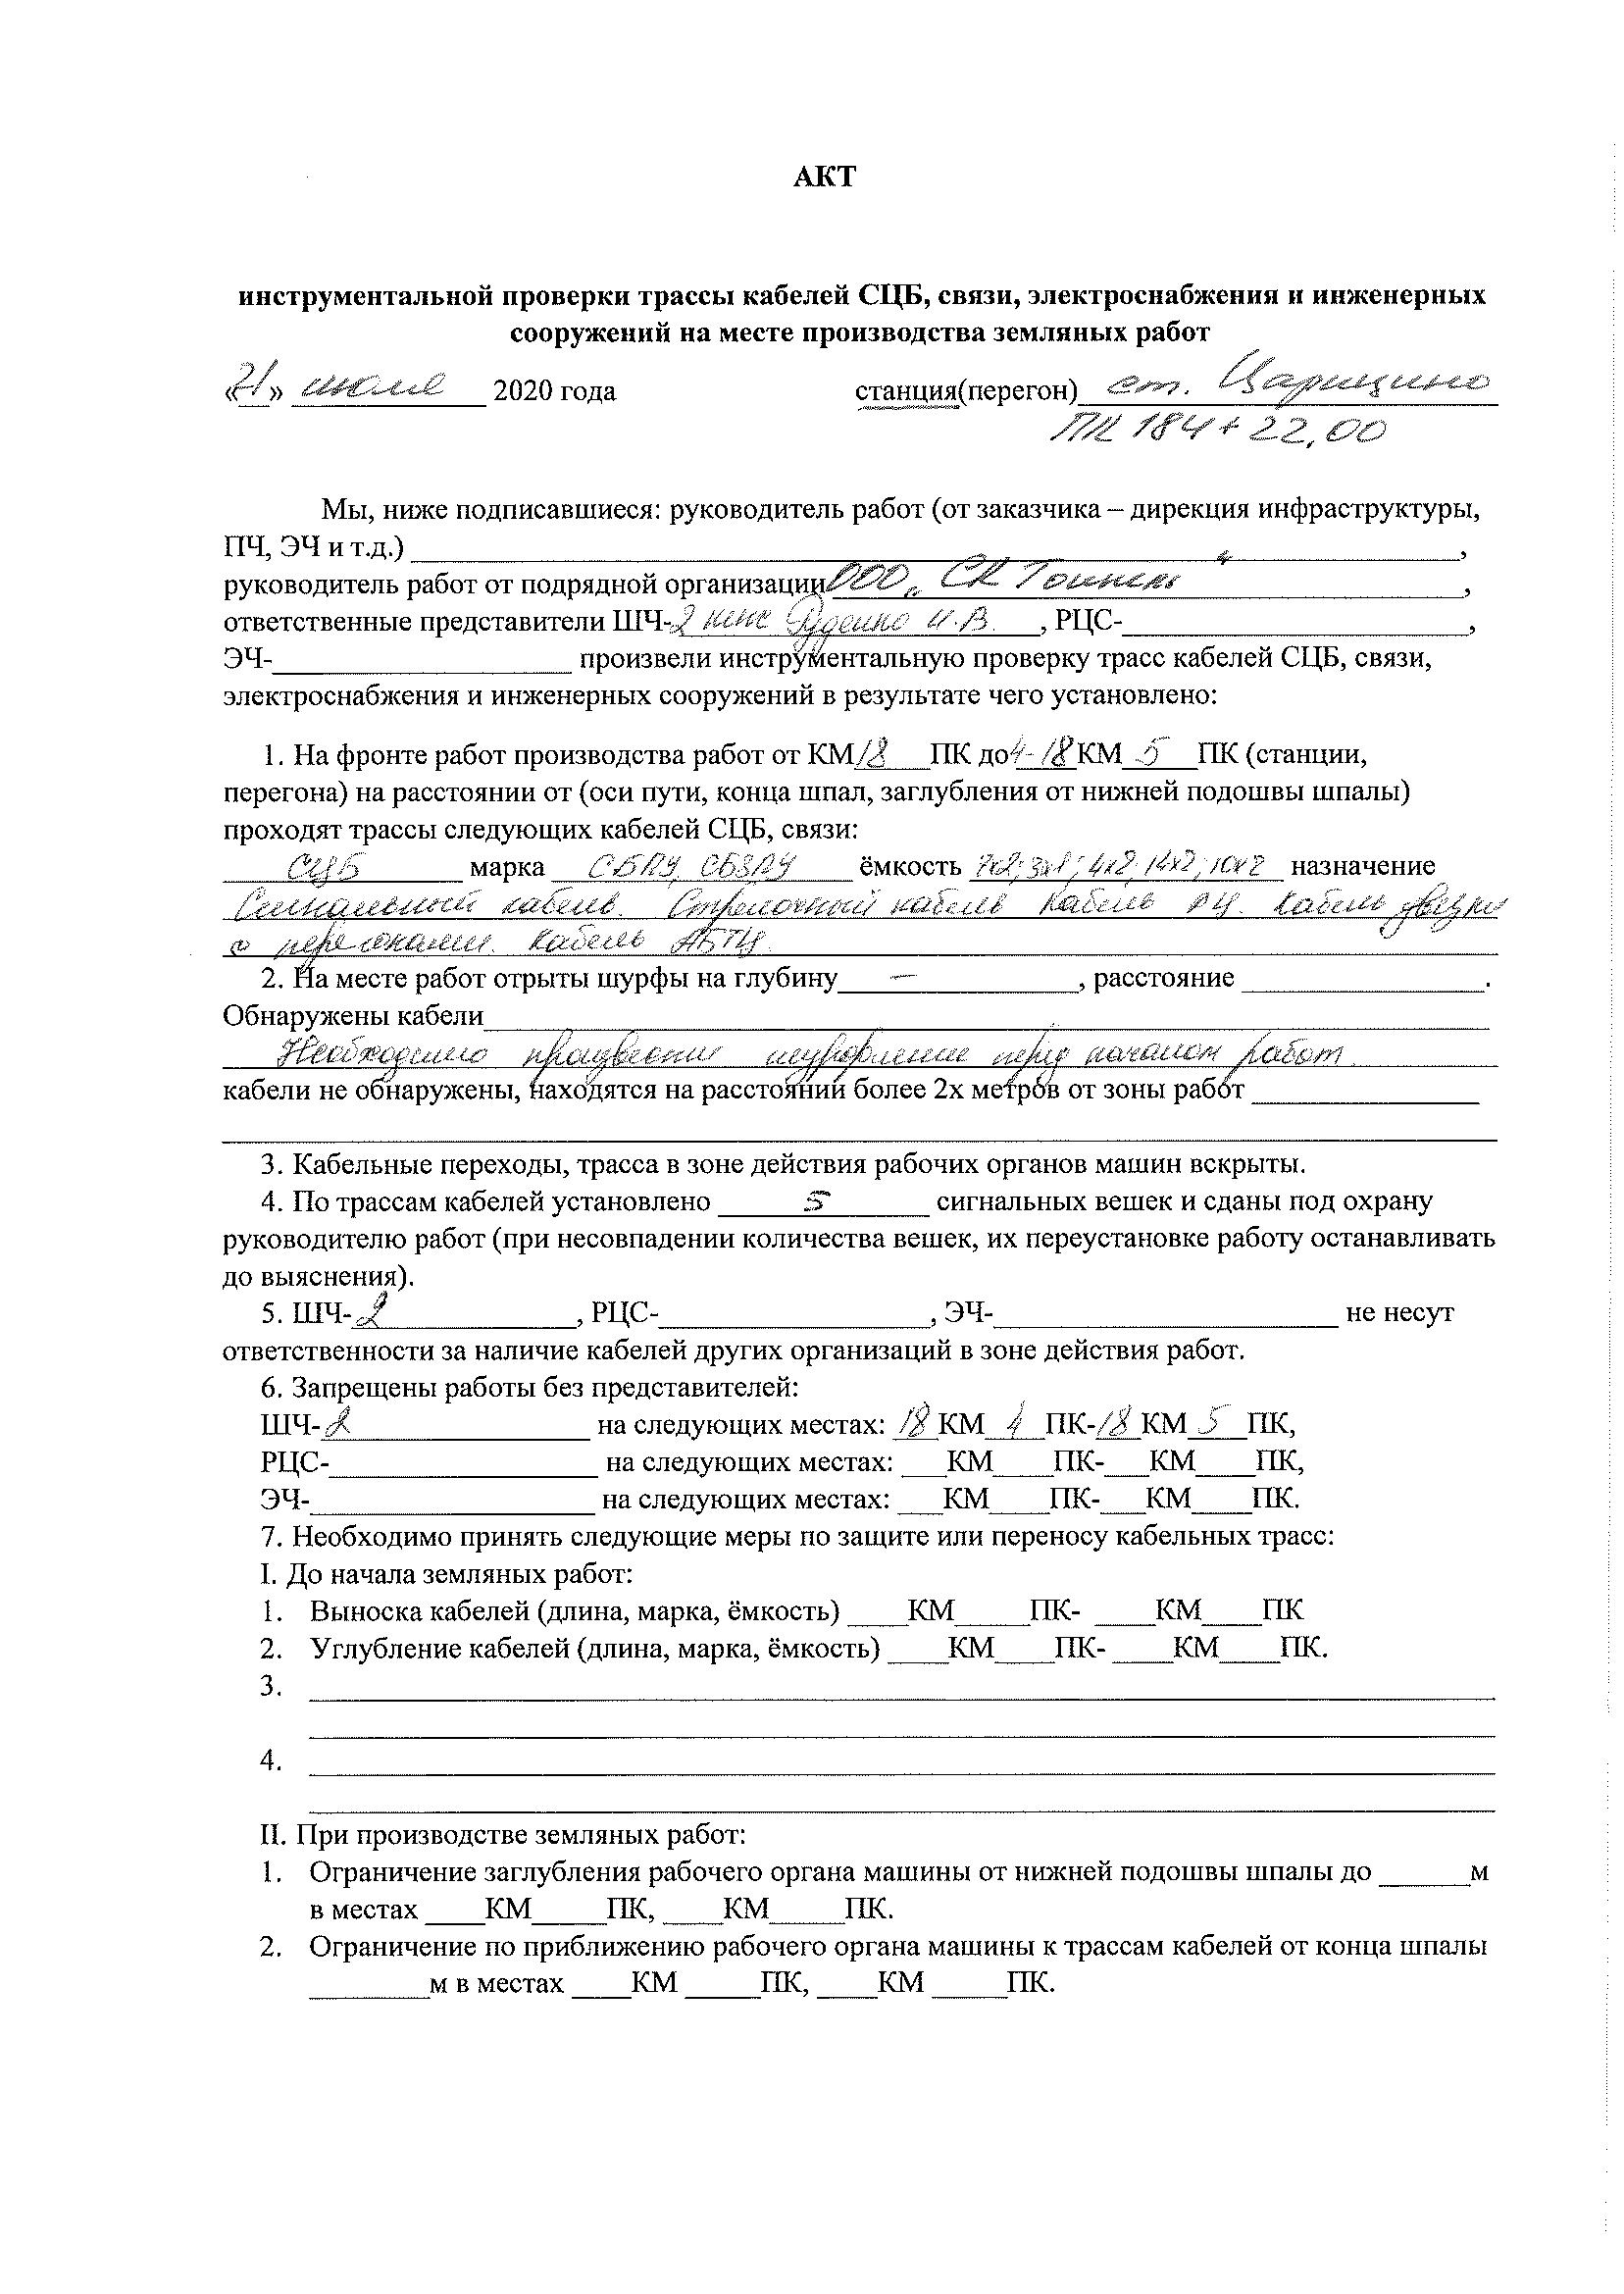 АКТ
инструментальной проверки трассы кабелей СЦБ, связи, электроснабжения и инженерных
сооружений на месте производства земляных работ
«21» июля 2020 года станция(перегон) ст. Царицино
ПК 184+22,00
Мы, ниже подписавшиеся: руководитель работ (от заказчика – дирекция инфраструктуры,
ПЧ, ЭЧ и т.д.) ,
руководитель работ от подрядной организации ООО „СК Тоннель“ ,
ответственные представители ШЧ-2 Руденко И.В. , РЦС- ,
ЭЧ- произвели инструментальную проверку трасс кабелей СЦБ, связи,
электроснабжения и инженерных сооружений в результате чего установлено:
1. На фронте работ производства работ от КМ 18 ПК до 4-18 КМ 5 ПК (станции,
перегона) на расстоянии от (оси пути, конца шпал, заглубления от нижней подошвы шпалы)
проходят трассы следующих кабелей СЦБ, связи:
СЦБ марка СБПУ, СБЗПУ ёмкость 7х2; 3х1; 4х2; 14х2; 10х2 назначение
Сигнальный кабель. Стрелочный кабель Кабель РЦ. Кабель увязки
с перегонами. Кабель АБТЦ.
2. На месте работ отрыты шурфы на глубину — , расстояние .
Обнаружены кабели
Необходимо произвести шурфление перед началом работ.
кабели не обнаружены, находятся на расстоянии более 2х метров от зоны работ
3. Кабельные переходы, трасса в зоне действия рабочих органов машин вскрыты.
4. По трассам кабелей установлено 5 сигнальных вешек и сданы под охрану
руководителю работ (при несовпадении количества вешек, их переустановке работу останавливать
до выяснения).
5. ШЧ-2 , РЦС- , ЭЧ- не несут
ответственности за наличие кабелей других организаций в зоне действия работ.
6. Запрещены работы без представителей:
ШЧ-2 на следующих местах: 18 КМ 4 ПК-18 КМ 5 ПК,
РЦС- на следующих местах: КМ ПК- КМ ПК,
ЭЧ- на следующих местах: КМ ПК- КМ ПК.
7. Необходимо принять следующие меры по защите или переносу кабельных трасс:
I. До начала земляных работ:
1. Выноска кабелей (длина, марка, ёмкость) КМ ПК- КМ ПК
2. Углубление кабелей (длина, марка, ёмкость) КМ ПК- КМ ПК.
3.
4.
II. При производстве земляных работ:
1. Ограничение заглубления рабочего органа машины от нижней подошвы шпалы до м
в местах КМ ПК, КМ ПК.
2. Ограничение по приближению рабочего органа машины к трассам кабелей от конца шпалы
м в местах КМ ПК, КМ ПК.